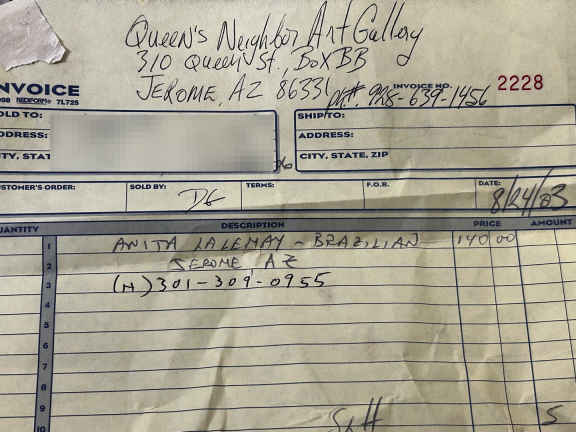 Queen's Neighbor Art Gallery
310 Queen St., Box BB
Jerome, AZ 86331 ph#. 928-639-1456
NVOICE INVOICE NO. 2228
REDIFORM 7L725
OLD TO: SHIP/TO:
DDRESS: ADDRESS:
TY, STAT CITY, STATE, ZIP
STOMER'S ORDER: SOLD BY: TERMS: F.O.B. DATE: 8/24/03
UANTITY DESCRIPTION PRICE AMOUNT
1 ANITA - BRAZILIAN 140 00
2 JEROME, AZ
3 (H) 301-309-0955
4
5
6
7
8
9
10 5